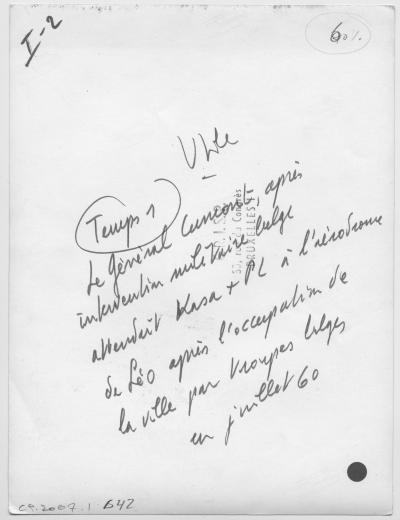 I-2
60%
Utile
Temps 1
Le Général Cumont après
intervention militaire belge
attendait Kasa + PL à l'aérodrome
de Léo après l'occupation de
la ville par troupes belges
en juillet 60
rue du Congrès
BRUXELLES 1
CP.2007.1 642